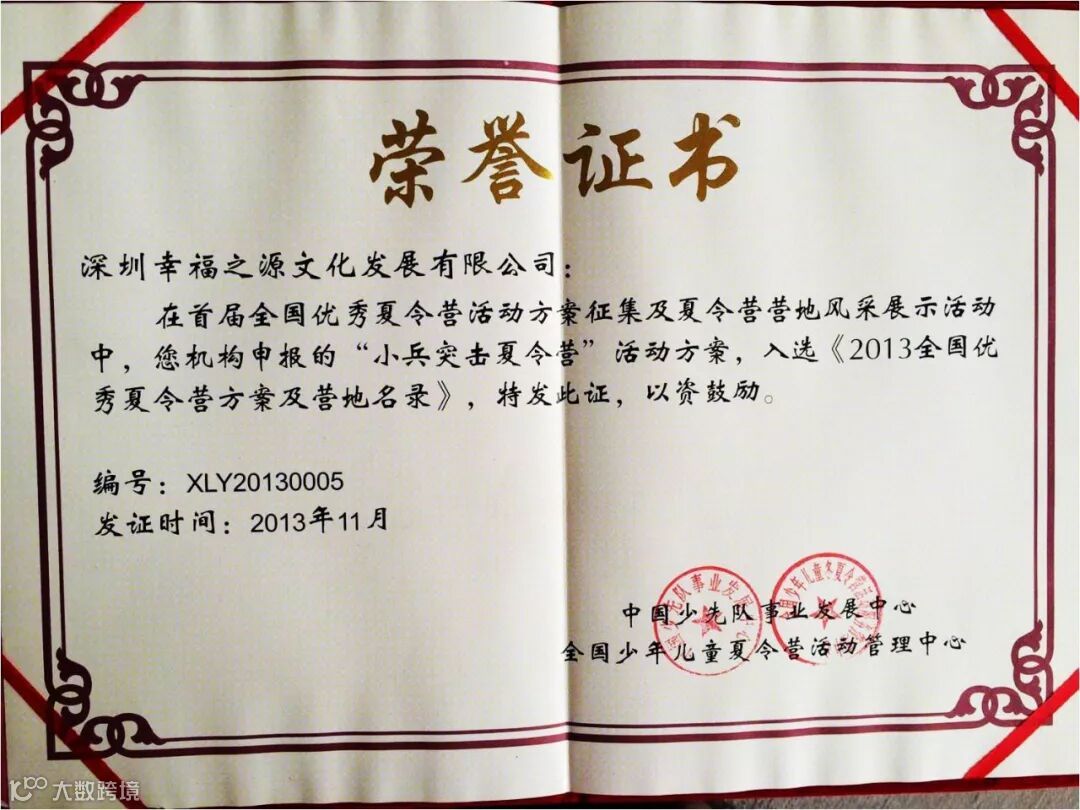 荣誉证书
深圳幸福之源文化发展有限公司：
在首届全国优秀夏令营活动方案征集及夏令营营地风采展示活动
中，您机构申报的“小兵突击夏令营”活动方案，入选《2013全国优
秀夏令营方案及营地名录》，特发此证，以资鼓励。
编号：XLY20130005
发证时间：2013年11月
中国少先队事业发展中心
全国少年儿童夏令营活动管理中心
大数跨境